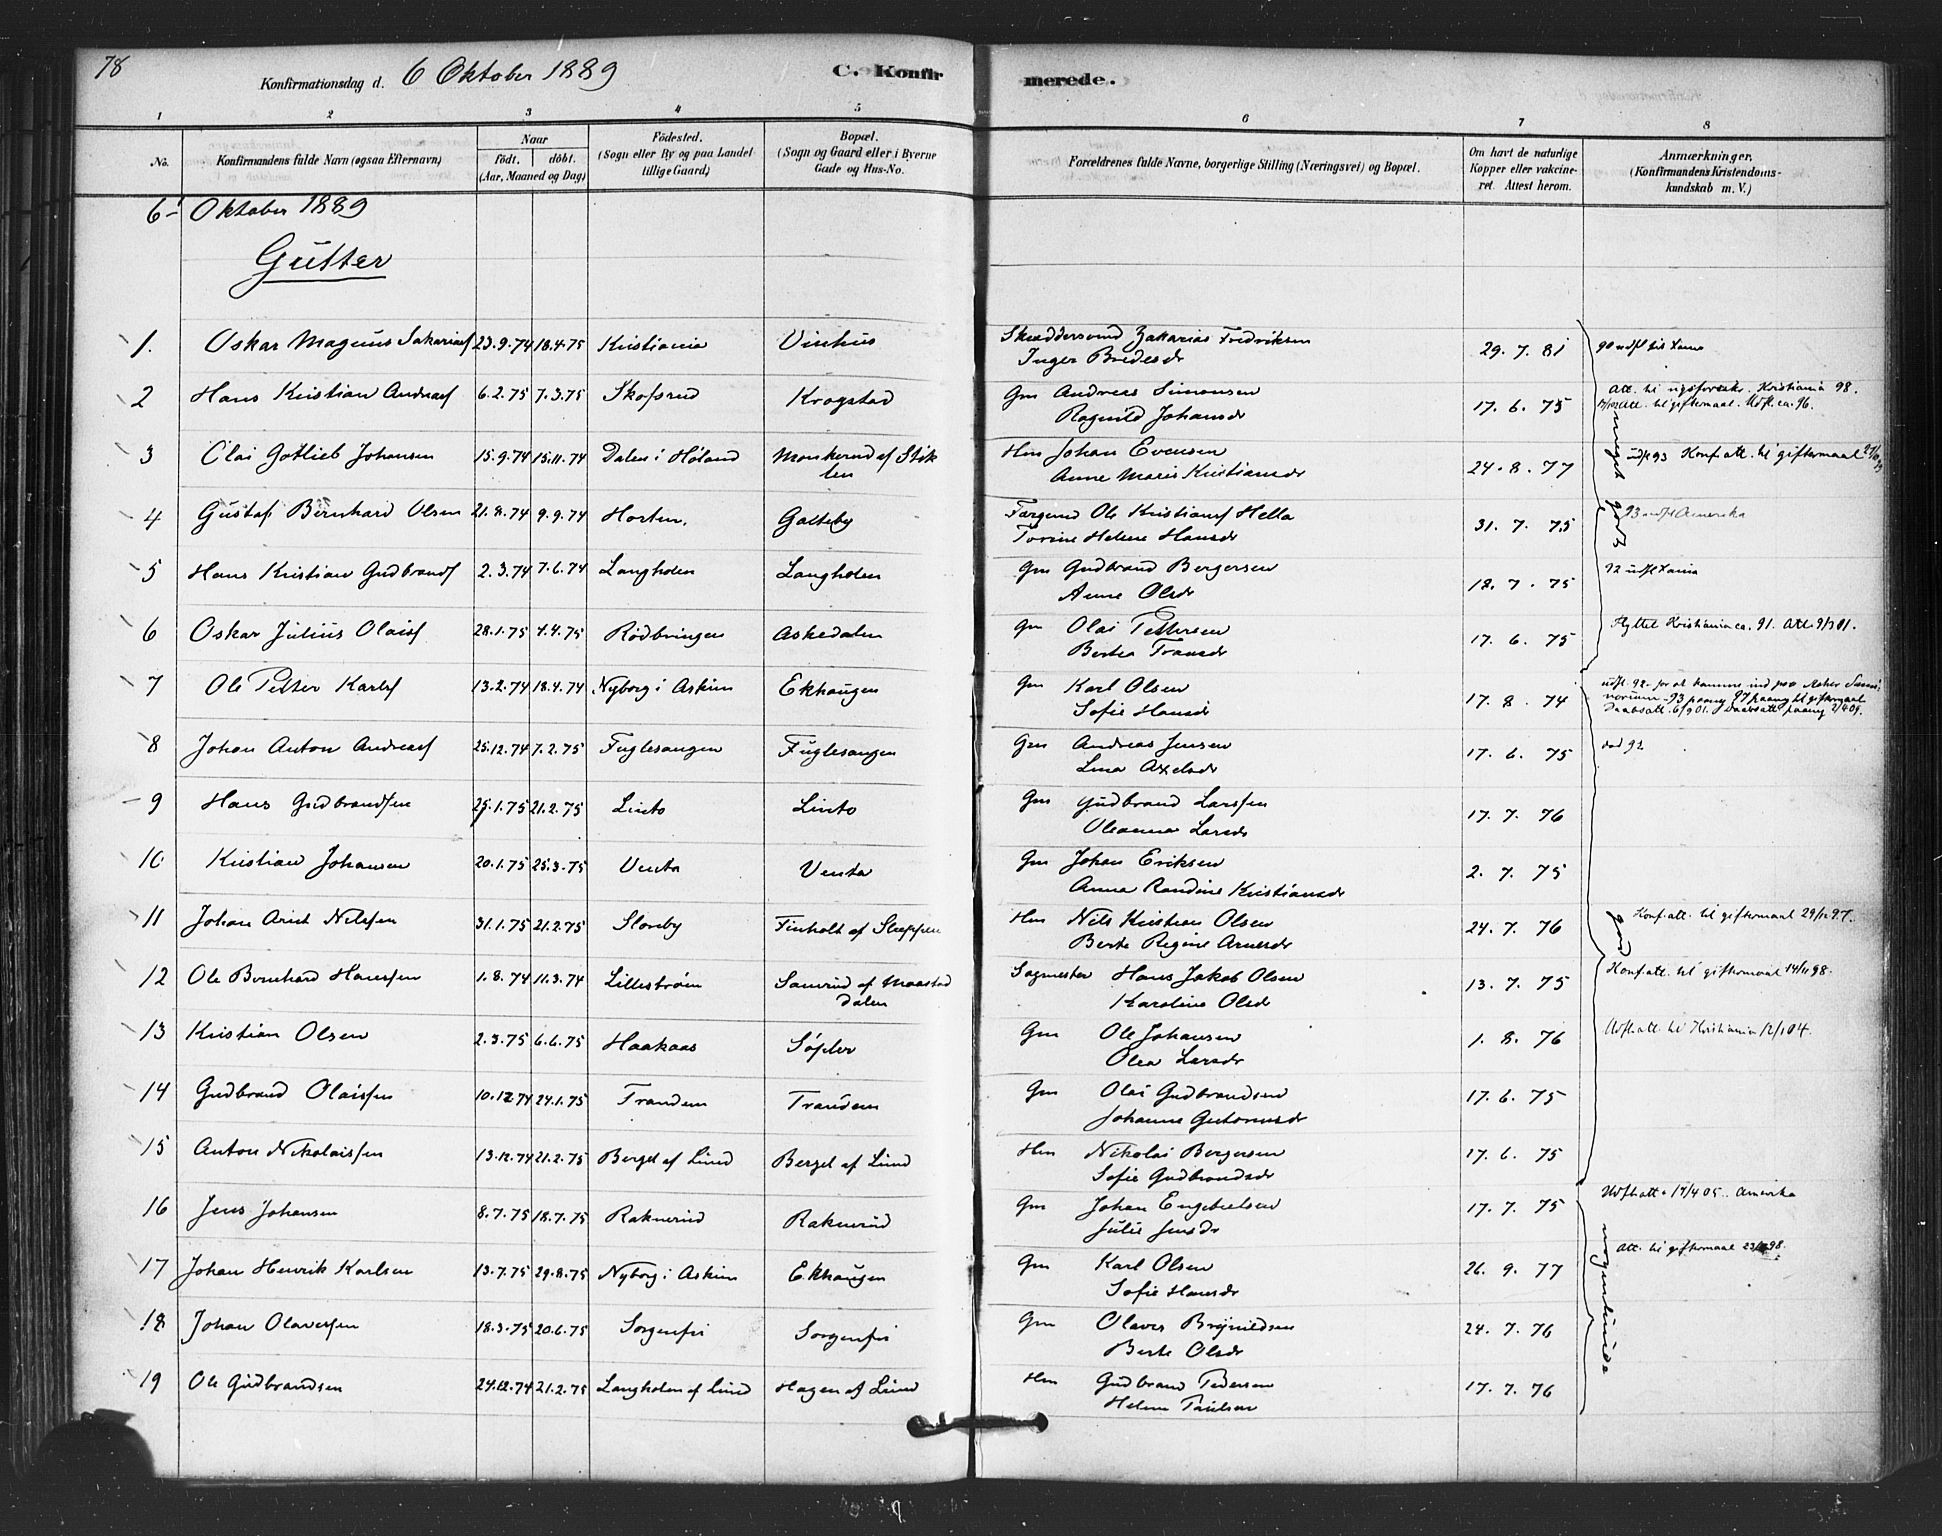 78
Konfirmationsdag d. 6 Oktober 1889
C. Konfirmerede.
1 2 3 4 5 6 7 8
No.
Konfirmandens fulde Navn (ogsaa Efternavn)
Naar
födt. döbt.
(Aar, Maaned og Dag)
Födested.
(Sogn eller By og paa Landet
tillige Gaard)
Bopæl.
(Sogn og Gaard eller i Byerne
Gade og Hus-No.
Forældrenes fulde Navne, borgerlige Stilling (Næringsvei) og Bopæl.
Om havt de naturlige
Kopper eller vakcine-
ret. Attest herom.
Anmærkninger.
(Konfirmandens Kristendoms-
kundskab m. V.)
6 Oktober 1889
Gutter
1. Oskar Magnus 23.9.74 18.4.75 Kristiania Vinhus Zakarias Fredriksen 29. 7. 81
Inger Bredesdr
2 Hans Kristian Andreasf 6.2.75 7.3.75 Skofsrud Krogstad Gm Andreas Simonsen 17. 6. 75 Att. til Kristiania 98.
Ragnild Johansdr Att. til giftermaal. Udfl. ca. 96.
3 Olai Gotlieb Johansen 15.9.74 15.11.74 Dalen i Höland af Stik Hm Johan Evensen 24. 8. 77 udfl 93 Konf. att. til giftermaal
len Anne Marie Kristiansdr
meget godt
4 Gustaf Bernhard Olsen 21.8.74 9.9.74 Horten. Galteby Ole Kristians Hella 31. 7. 75 93 udfl Amerika
Torine Helene Hansdr
5 Hans Kristian Gudbrandf 2.3.74 7.6.74 Langholen Langholen Gm Gudbrand Bergersen 18. 7. 75 92 udfl
Anne Olsdr
6 Oskar Julius Olaisf 28.1.75 4.4.75 Rödbringen Askedalen Gm Olai Pettersen 17. 6. 75 flyttet Kristiania ca. 91. Att. 9/3 01.
Bertea
7 Ole Petter Karlsf 13.2.74 18.4.74 Nyborg i Askim Ekhaugen Gm Karl Olsen 17. 8. 74 udfl. 92 for at komme ind paa Asker Semi
Sofie Hansdr norium. 93 paany 97 paany til giftermaal
Daabsatt. 6/9 01. Daabsatt paany
8 Johan Anton Andreasf 25.12.74 7.2.75 Fuglesangen Fuglesangen Gm Andreas Jensen 17. 6. 75 död 92
Lina Axelsdr
9 Hans Gudbrandsen 25.1.75 21.2.75 Linto Linto Gm Gudbrand Larssen 17. 7. 76
Oleanna Larsdr
10 Kristian Johansen 20.1.75 25.3.75 Venta Venta Gm Johan Eriksen 2. 7. 75
Anna Randine Kristiansdr
11 Johan Arnt Nilssen 31.1.75 21.2.75 Sloreby Finholt af Hm Nils Kristian Olsen 24. 7. 76 Konf. att. til giftermaal 97.
Berte Regine Arnesdr
god
12 Ole Bernhard Hanssen 1.8.74 11.3.74 Lilleström af Maastad Sagmester Hans Jakob Olsen 13. 7. 75 Konf. att. til giftermaal 14/11 98.
dalen Karoline Olsd
13 Kristian Olsen 2.3.75 6.6.75 Haakaas Söpler Gm Ole Johansen 1. 8. 76 Udfl. att. til Kristiania 12/1 04.
Olea Larsdr
14 Gudbrand Olaissen 10.12.74 24.1.75 Trandem Trandem Gm Olai Gudbrandsen 17. 6. 75
Johanne Gutormsdr
15 Anton Nikolaissen 13.12.74 21.2.75 Berget af Lund Berget af Lund Hm Nikolai Bergersen 17. 6. 75
Sofie Gudbrandsdr
16 Jens Johansen 8.7.75 18.7.75 Raknerud Raknerud Gm Johan Engebretsen 17. 7. 75 Udfl. att. 05. Amerika
Julie Jensdr
nogenlunde
17 Johan Henrik Karlsen 13.7.75 29.8.75 Nyborg i Askim Ekhaugen Gm Karl Olsen 26. 9. 77 Att. til giftermaal 98.
Sofie Hansdr
18 Johan Olavessen 18.3.75 20.6.75 Sorgenfri Sorgenfri Gm Olaves Brynildsen 24. 7. 76
Berte Olsdr
19 Ole Gudbrandsen 24.12.74 21.2.75 Langholen af Lund Hagen af Lund Hm Gudbrand Pedersen 17. 7. 76
Helene